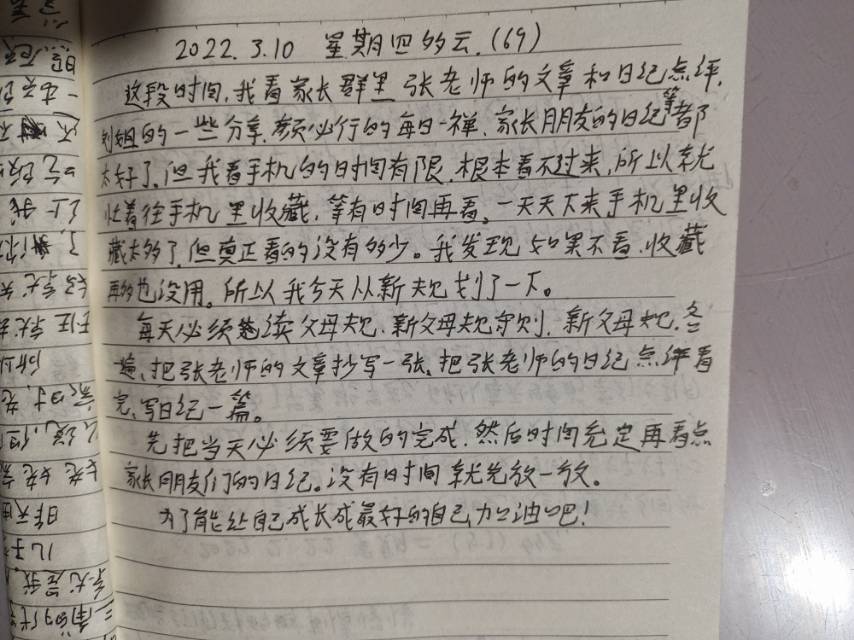 2022.3.10 星期四多云.(69)
这段时间,我看家长群里 张老师的文章和日纪点评,
的一些分享,须必行的每日一禅、家长朋友的日纪等都
太好了,但我看手机的时间有限,根本看不过来,所以就
忙着往手机里收藏,等有时间再看。一天天下来手机里收
藏太多了,但真正看的没有多少。我发现如果不看,收藏
再多也没用。所以我今天从新规划了一下。
每天必须读父母规、新父母规守则、新父母规.各
遍、把张老师的文章抄写一张、把张老师的日纪点评看
完、写日纪一篇。
先把当天必须要做的完成,然后时间充足再看点
家长朋友们的日纪。没有时间就先放一放。
为了能让自己成长成最好的自己,加油吧!